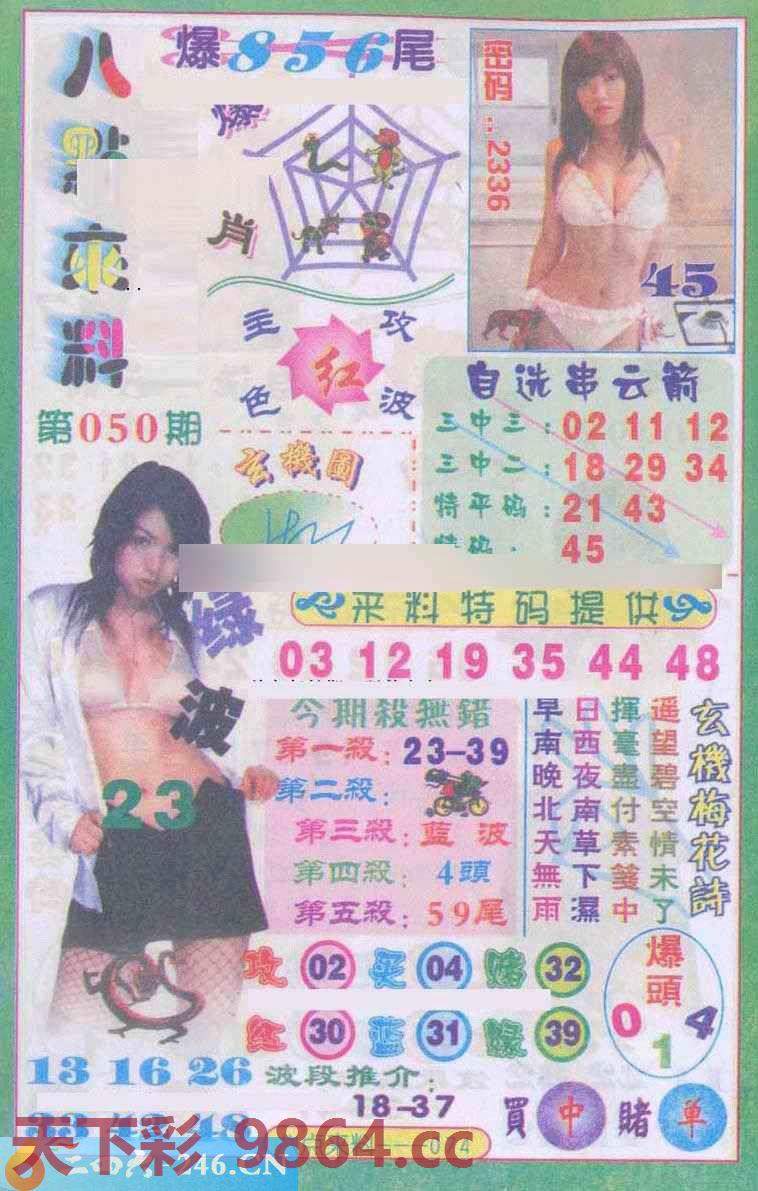 八點來料
爆856尾
爆肖
密码:2336
45
主攻
红
色波
第050期
玄機圖
自选串云箭
三中三:02 11 12
三中二:18 29 34
特平码:21 43
特码:45
来料特码提供
03 12 19 35 44 48
绿波
23
今期殺無錯
第一殺:23-39
第二殺:
第三殺:藍波
第四殺:4頭
第五殺:59尾
玄機梅花詩
遥望碧空情未了
揮毫盡付素箋中
日西夜南草下濕
早南晚北天無雨
攻 02 买 04 赌 32
红 30 蓝 31 绿 39
爆頭
0 1 4
13 16 26
波段推介:
18-37
買中賭单
天下彩 9864.cc
246.CN